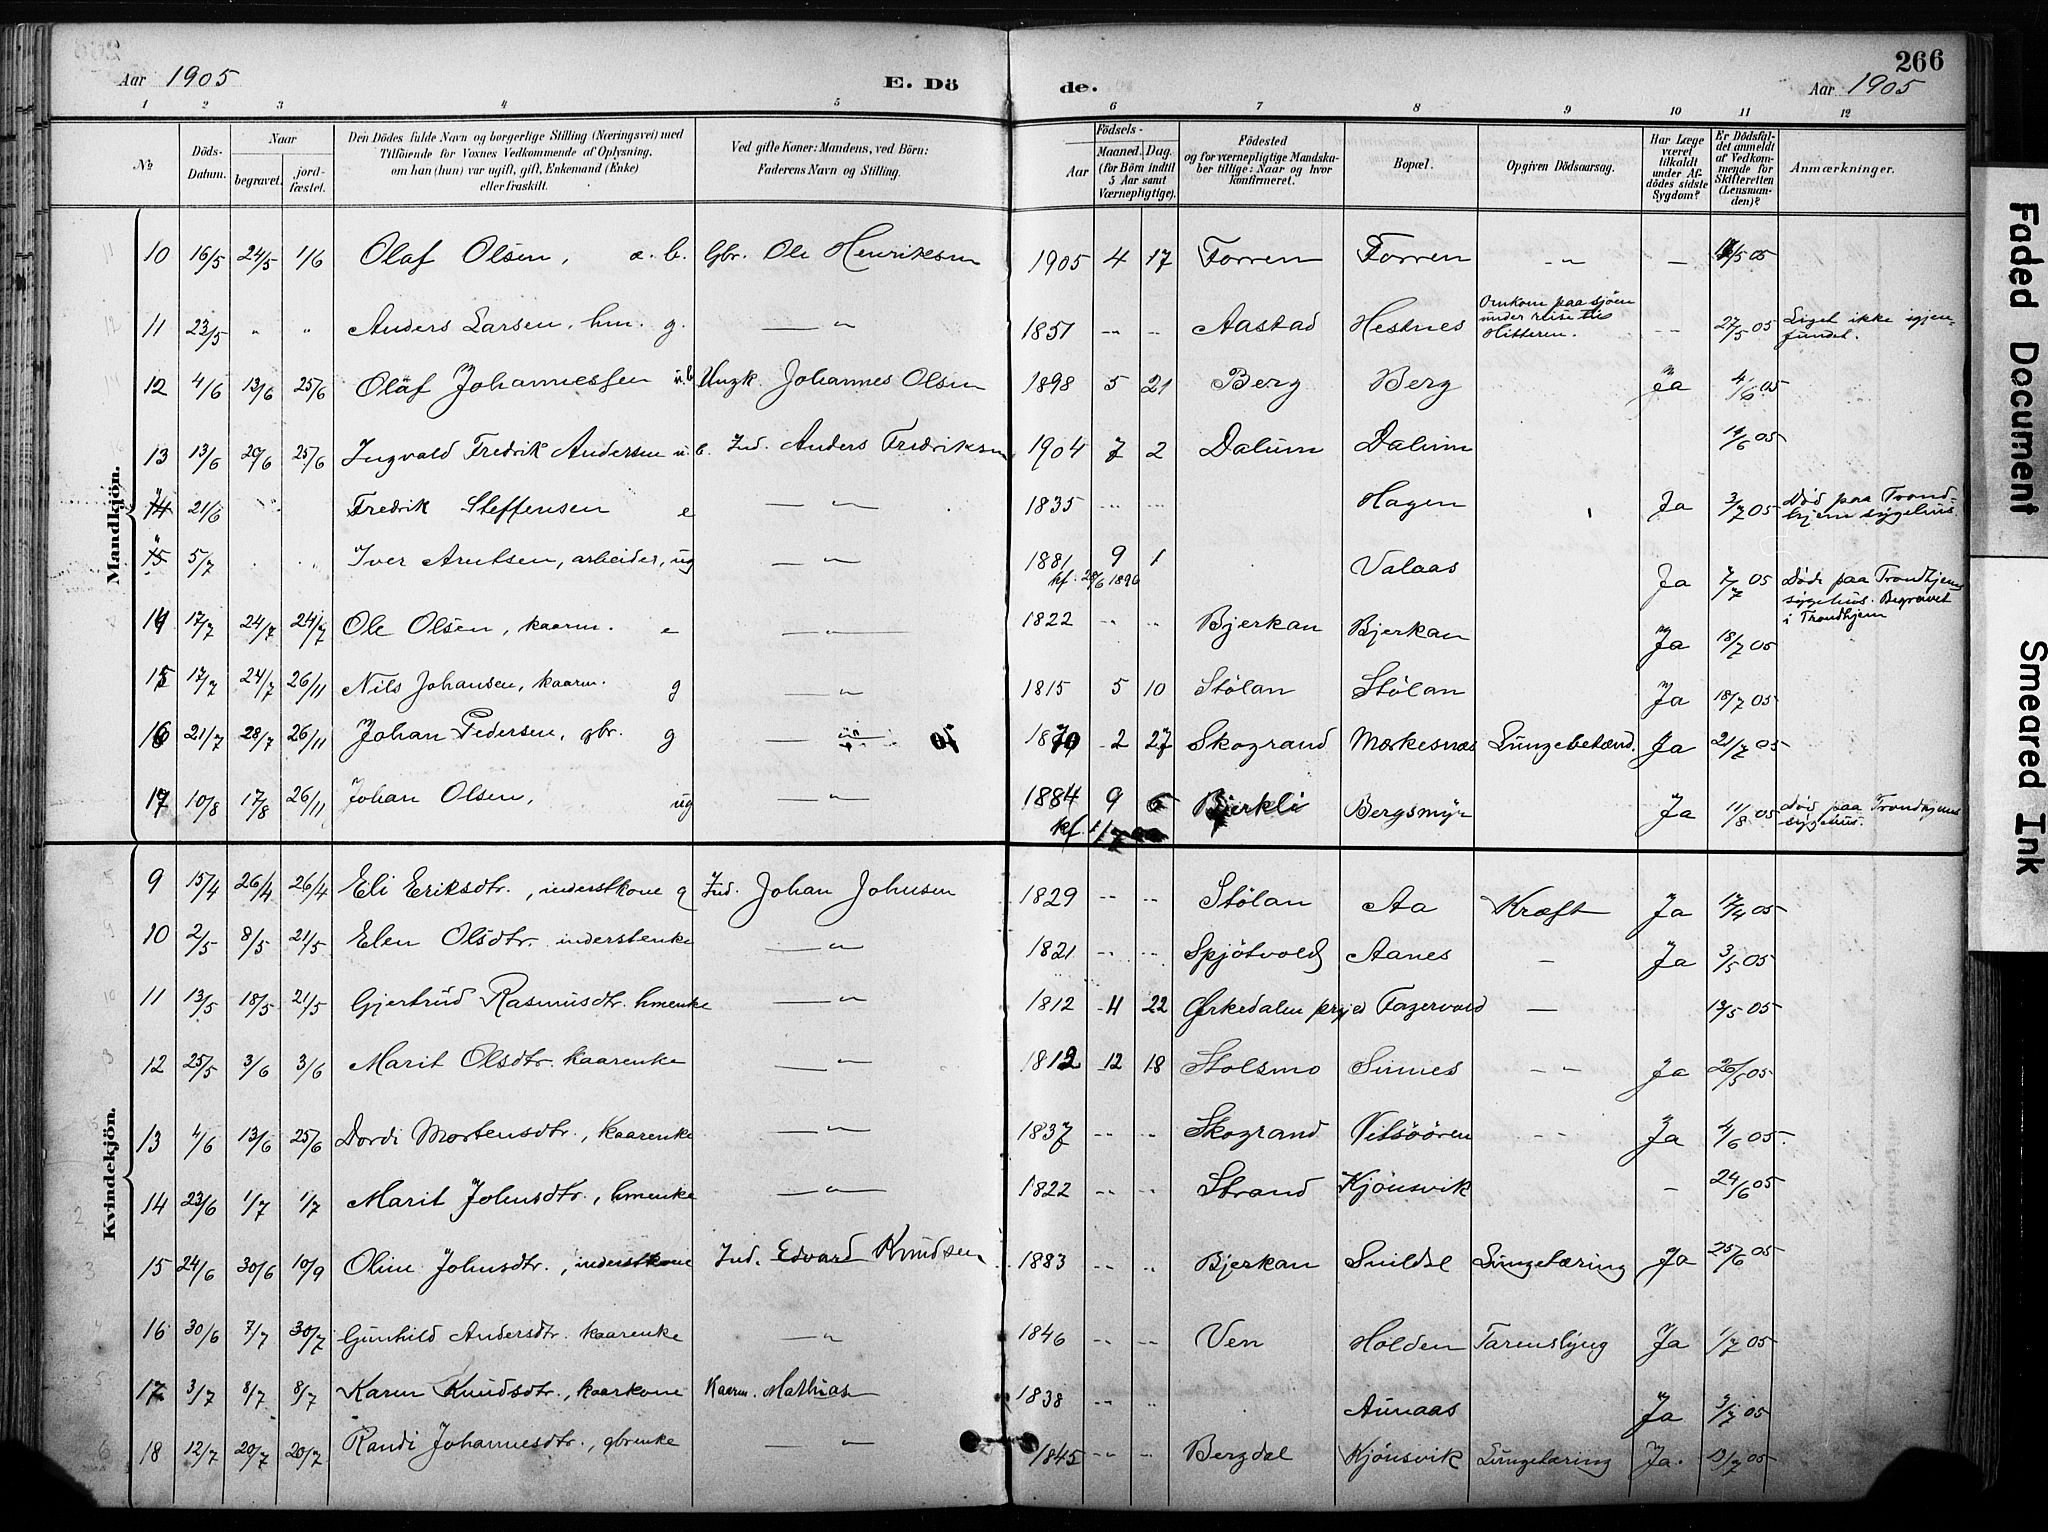 266
Aar 1905 E. Dö de. Aar 1905
1 2 3 4 5 6 7 8 9 10 11 12
No
Döds-Datum.
Naar
begravet. jord-fæstet.
Den Dödes fulde Navn og borgerlige Stilling (Næringsvei) med Tilföiende for Voxnes Vedkommende af Oplysning, om han (hun) var ugift, gift, Enkemand (Enke) eller fraskilt.
Ved gifte Koner: Mandens, ved Börn: Faderens Navn og Stilling.
Födsels-
Aar Maaned. Dag. (for Börn indtil 5 Aar samt Værnepligtige).
Födested og for værnepligtige Mandskaber tillige: Naar og hvor konfirmeret.
Bopæl.
Opgiven Dödsaarsag.
Har Læge været tilkaldt under Afdödes sidste Sygdom?
Er Dödsfaldet anmeldt af Vedkommende for Skifteretten (Lensmanden)?
Anmærkninger.
Mandkjön.
10 16/5 24/5 1/6 Olaf Olsen, æ. b. Gbr. Ole Henriksen 1905 4 17 Forren Forren - " - — /5 05
11 23/5 " " Anders Larsen, hm. g. — " 1851 -- -- Aastad Hestnes Omkom paa sjöen under reise til Hitteren. -- 27/5 05 Liget ikke igjenfundet.
12 4/6 13/6 25/6 Olaf Johannessen u.b Ungk. Johannes Olsen 1898 5 21 Berg Berg Ja 4/6 05
13 13/6 20/6 25/6 Ingvald Fredrik Andersen u. b. Ind. Anders Fredriksen 1904 7 2 Dalum Dalum 14/6 05
14 21/6 Fredrik Steffensen e — " — 1835 Hagen Ja 3/7 05 Död paa Trondhjem sygehus.
15 5/7 Iver Arntsen, arbeider, ug — " — 1881 9 1 kf. 28/6 1896 Valaas Ja 7/7 05 Döde paa Trondhjems sygehus. Begravet i Trondhjem
14 17/7 24/7 24/7 Ole Olsen, kaarm. e — " — 1822 Bjerkan Bjerkan Ja 18/7 05
15 17/7 24/7 26/11 Nils Johansen, kaarm. g — " — 1815 5 10 Stölan Stölan Ja 18/7 05
16 21/7 28/7 26/11 Johan Pedersen, gbr. g — " — 1870 2 27 Skogrand Mærkesnæs Lungebetænd. Ja 21/7 05
17 10/8 17/8 26/11 Johan Olsen, ug — " — 1884 9 6 kf. 1/7 Bjerkli Bergsmyr Ja 11/8 05 Död paa Trondhjems sygehus.
Kvindekjön.
9 15/4 26/4 26/4 Eli Eriksdtr., inderstkone g Ind. Johan Johnsen 1829 -- -- Stölan Aa Kræft Ja 17/4 05
10 2/5 8/5 21/5 Elen Olsdtr. inderstenke — " 1821 -- -- Spjötvold Aanes — Ja 3/5 05
11 13/5 18/5 21/5 Gjertrud Rasmusdtr. hmenke — " 1812 4 22 Ørkedalen prgjed Fagervold — 13/5 05
12 25/5 3/6 3/6 Marit Olsdtr. kaarenke — " — 1812 12 18 Stolsmo Sinnes - " - Ja 26/5 05
13 4/6 13/6 25/6 Dordi Mortensdtr., kaarenke — " — 1837 -- -- Skogrand Vitsöören -- Ja 4/6 05.
14 23/6 1/7 1/7 Marit Johnsdtr., hmenke — " — 1822 -- -- Strand Kjönsvik - 24/6 05
15 24/6 30/6 10/9 Oline Johnsdtr., inderstkone Ind. Edvard Knudsen 1883 " " Bjerkan Snildal Lungetæring Ja 25/6 05
16 30/6 7/7 30/7 Gunhild Andersdtr. kaarenke — " 1846 -- -- Ven Holden Tarenslyng Ja 1/7 05
17 3/7 8/7 8/7 Karen Knudsdtr., kaarkone Kaarm. Mathias 1838 -- -- Aunaas Ja 3/7 05
18 12/7 20/7 20/7 Randi Johannesdtr., gbrenke — " 1845 -- -- Bergdal Kjönsvik Lungetæring Ja. 13/7 05
Faded Document
Smeared Ink